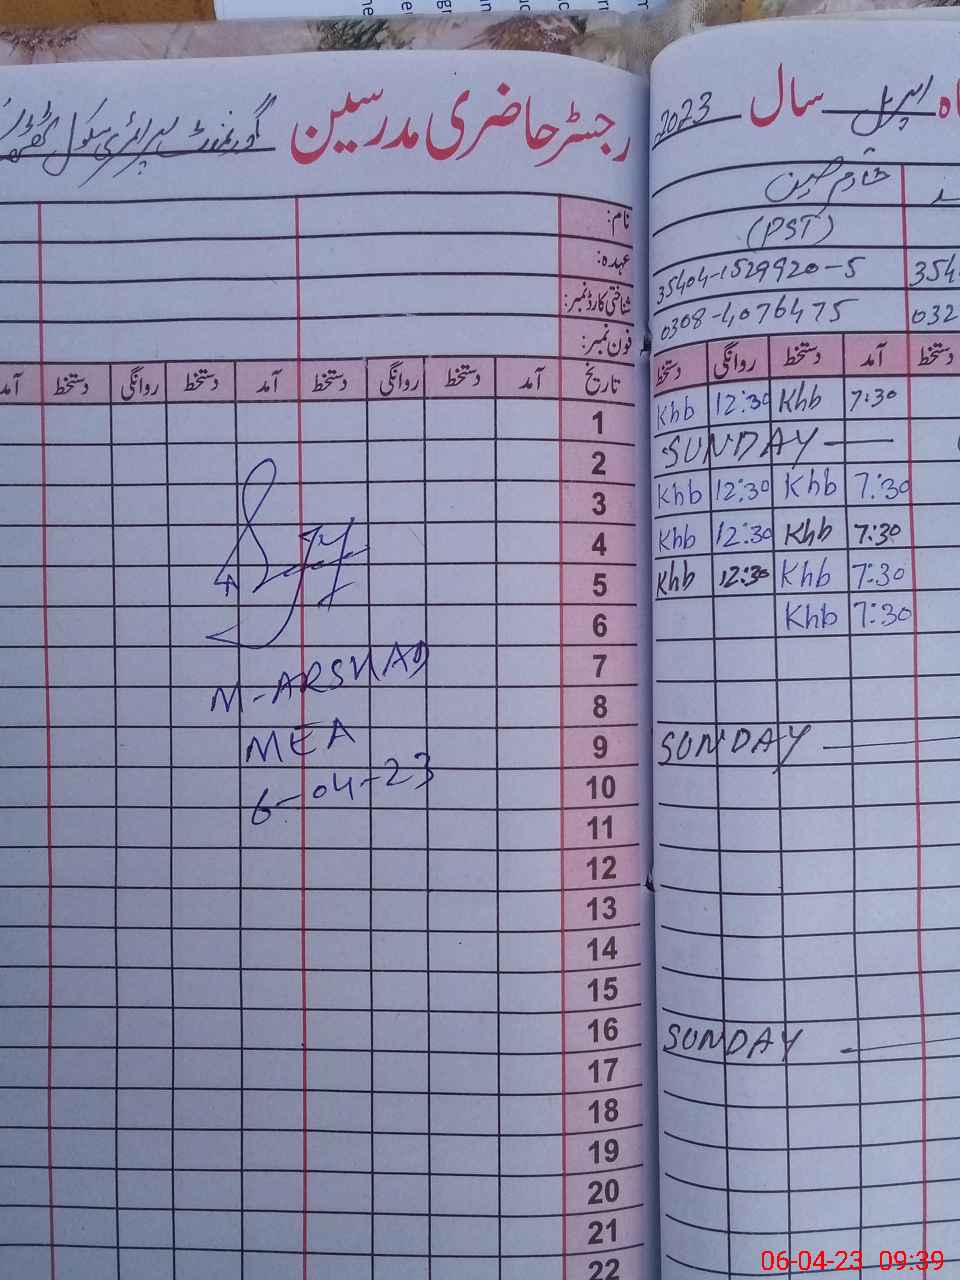 رجسٹر حاضری مدرسین گورنمنٹ پرائمری سکول
نام:
عہدہ:
شناختی کارڈ نمبر:
فون نمبر:
تاریخ آمد دستخط روانگی دستخط آمد دستخط روانگی دستخط آمد
1
2
3
4
5
6
7
8
9
10
11
12
13
14
15
16
17
18
19
20
21
22
M-ARSHAD
MEA
6-04-23
ماہ اپریل سال 2023
خادم حسین
(PST)
35404-1529920-5 354
0308-4076475 032
دستخط آمد دستخط روانگی دستخط
Khb 12:30 Khb 7:30
SUNDAY
Khb 12:30 Khb 7:30
Khb 12:30 Khb 7:30
Khb 12:30 Khb 7:30
Khb 7:30
SUNDAY
SUNDAY
06-04-23 09:39